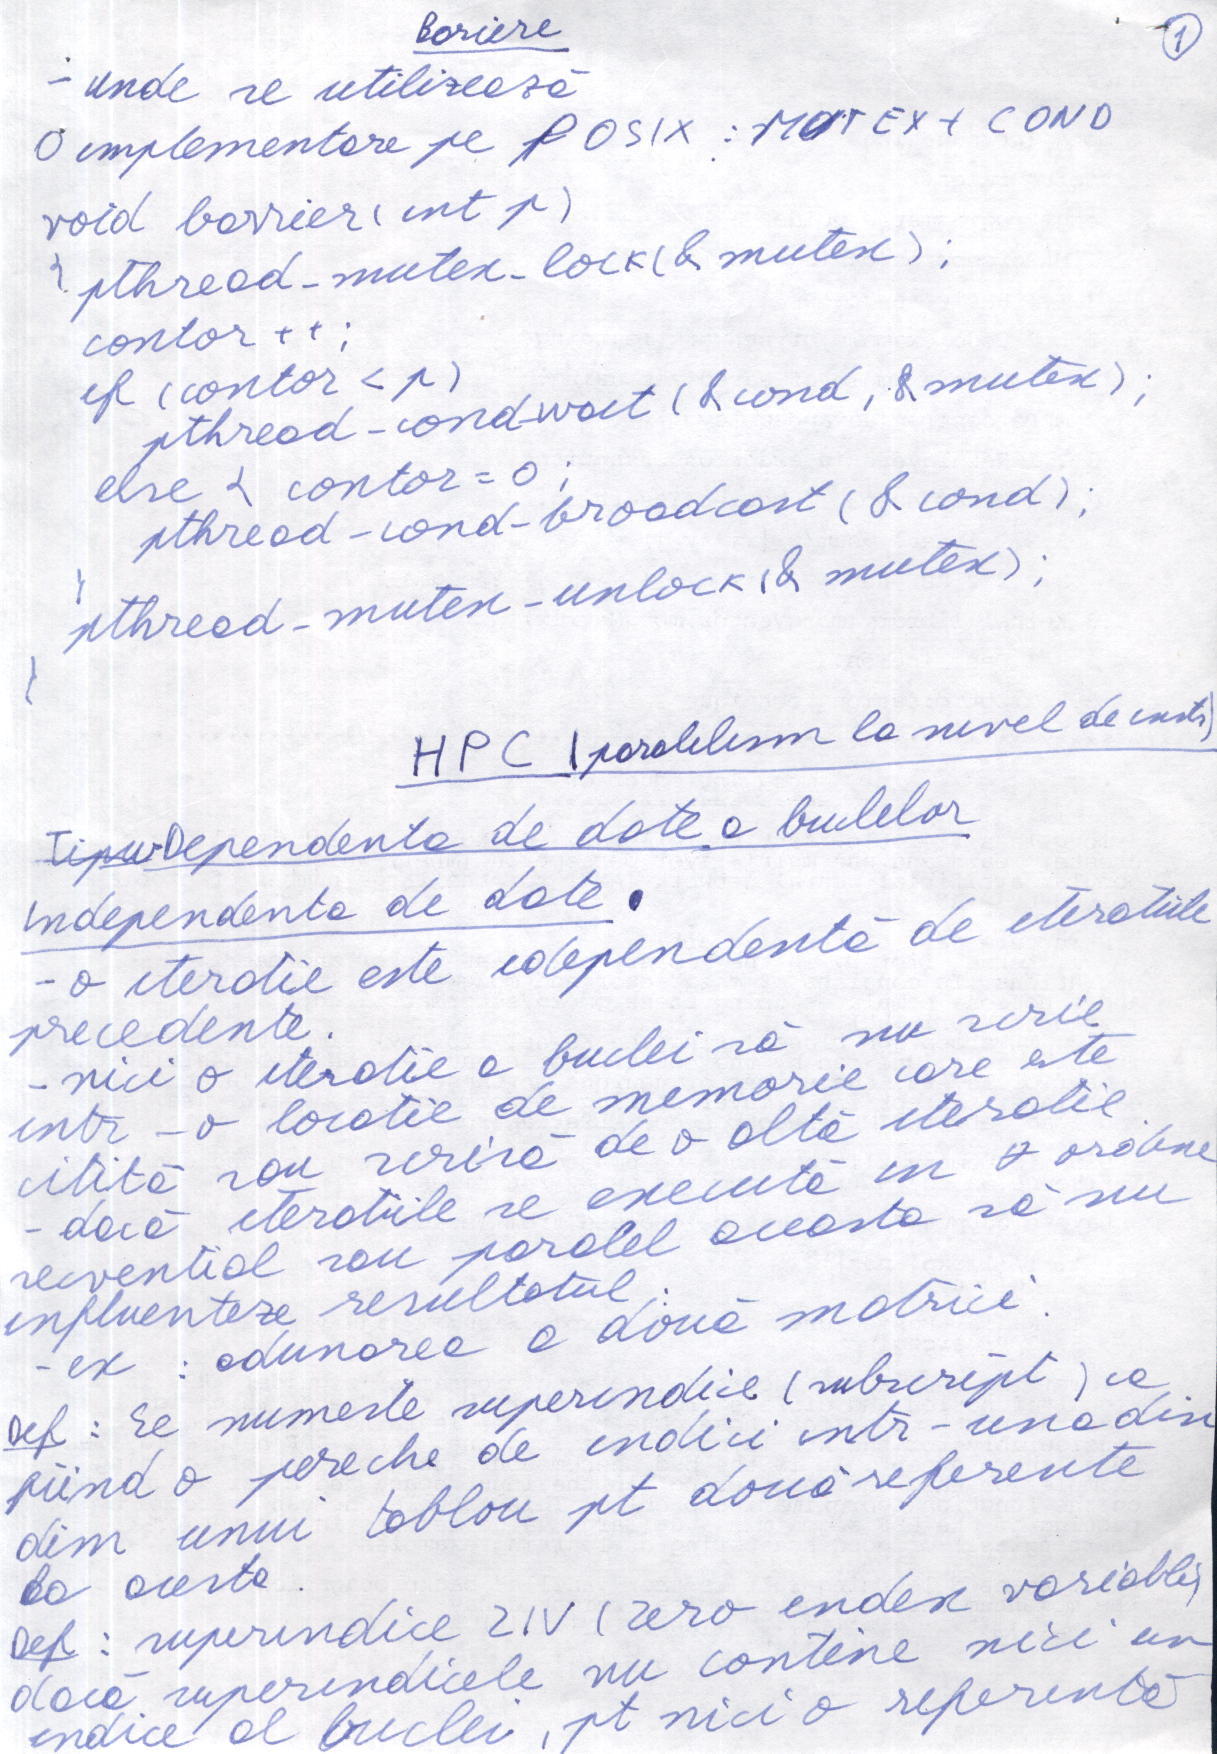 Bariere
1
- unde se utilizează
O implementare pe POSIX : MUTEX + COND
void barrier(int p)
{ pthread_mutex_lock(&mutex);
contor++;
if (contor < p)
pthread_cond_wait(&cond, &mutex);
else { contor = 0;
pthread_cond_broadcast(&cond);
}
pthread_mutex_unlock(&mutex);
}
HPC (paralelism la nivel de instr)
Dependenta de date a buclelor
Independenta de date.
- o iteratie este independentă de iteratiile
precedente.
- nici o iteratie a buclei să nu scrie
intr-o locatie de memorie care este
citită sau scrisă de o altă iteratie
- dacă iteratiile se execută in ≠ ordine
secvential sau paralel aceasta să nu
influenteze resultatul.
- ex : adunarea a două matrici.
Def : Se numeste superindice (subscript) ca
fiind o pereche de indici intr-una din
dim unui tablou pt două referente
la acesta.
Def : superindice ZIV (zero index variable)
dacă superindicele nu contine nici un
indice al buclei, pt nici o referentă